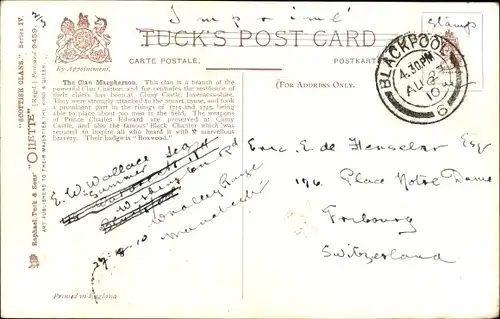 Imprimé
Stamps
TUCK'S POST CARD
CARTE POSTALE.
POSTKARTE
By Appointment.
(FOR ADDRESS ONLY.
BLACKPOOL
4.30PM
AU 2
10
6
The Clan Macpherson. This clan is a branch of the
powerful Clan Chattan, and for centuries the residence of
their chiefs has been at Cluny Castle, Inverness-shire.
They were strongly attached to the Stuart cause, and took
a prominent part in the risings of 1715 and 1745, being
able to place about 300 men in the field. The weapons
of Prince Charles Edward are preserved at Cluny
Castle, and also the famous Black Chanter which was
reputed to inspire all who heard it with marvellous
bravery. Their badge is "Boxwood."
"SCOTTISH CLANS." SERIES IV.
"OILETTE" [Regd.] Postcard 9459.
Raphael Tuck & Sons'
ART PUBLISHERS TO THEIR MAJESTIES THE KING & QUEEN.
E. W. Wallace Esq
Summer
Withington Rd
Whalley Range
Manchester
Eric. E. de Henseler Esq
176 Place Notre Dame
Fribourg
Switzerland
Printed in England